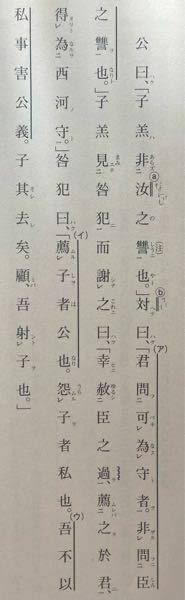 公曰、「子羔非汝之讐也。」対曰、「君問可為守者。非問臣
之讐也。」子羔見咎犯而謝之曰、「幸赦臣之過、薦之於君、
得為西河守。」咎犯曰、「薦子者公也。怨子者私也。吾不以
私事害公義。子其去矣。顧吾射子也。」
(ア)
(イ)
(ウ)
ⓐ
ⓑ